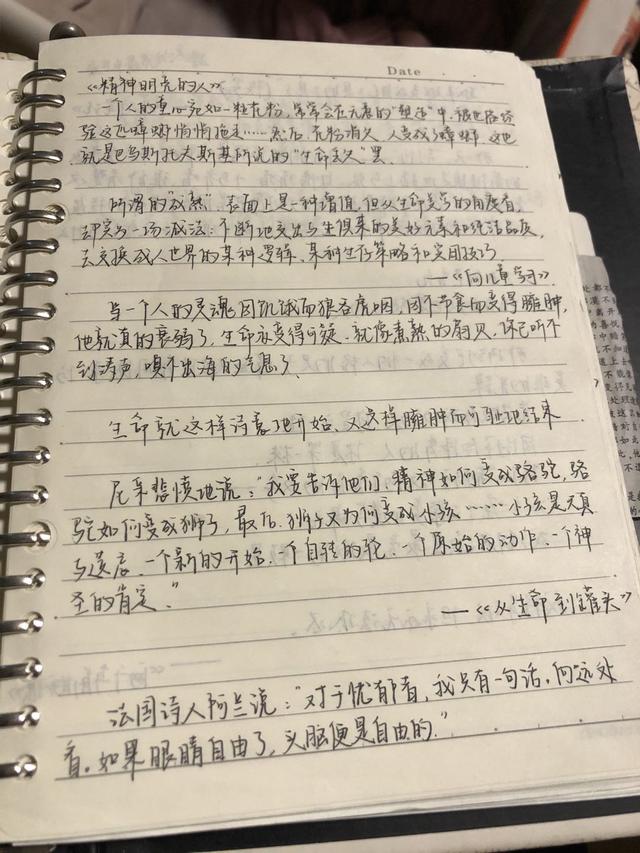 Date
《精神明亮的人》
一个人的童心宛如一粒花粉，常常会在无意的“塑造”中，被世俗经
验这匹蟑螂悄悄拖走……然后，花粉消失，人变成了蟑螂。这也
就是巴乌斯托夫斯基所说的“生命丢失”罢
所谓的“成熟”，表面上是一种增值，但从生命美学的角度看，
却实为一场减法：不断地交出与生俱来的美好元素和纯洁品质，
去交换成人世界的某种逻辑、某种生存策略和实用技巧
——《向儿童学习》
当一个人的灵魂因饥饿而狼吞虎咽，因不节食而变得臃肿，
他就真的衰弱了，生命亦变得可疑，就像煮熟的扇贝，你已听不
到涛声，嗅不出海的气息了
生命就这样诗意地开始、又这样臃肿而可耻地结束
尼采悲愤地说：“我要告诉他们，精神如何变成骆驼，骆
驼如何变成狮子，最后，狮子又为何变成小孩……小孩是天真
与遗忘、一个新的开始、一个自转的轮、一个原始的动作、一个神
圣的肯定。”
——《从生命到罐头》
法国诗人阿兰说：“对于忧郁者，我只有一句话，向远处
看。如果眼睛自由了，头脑便是自由的。”